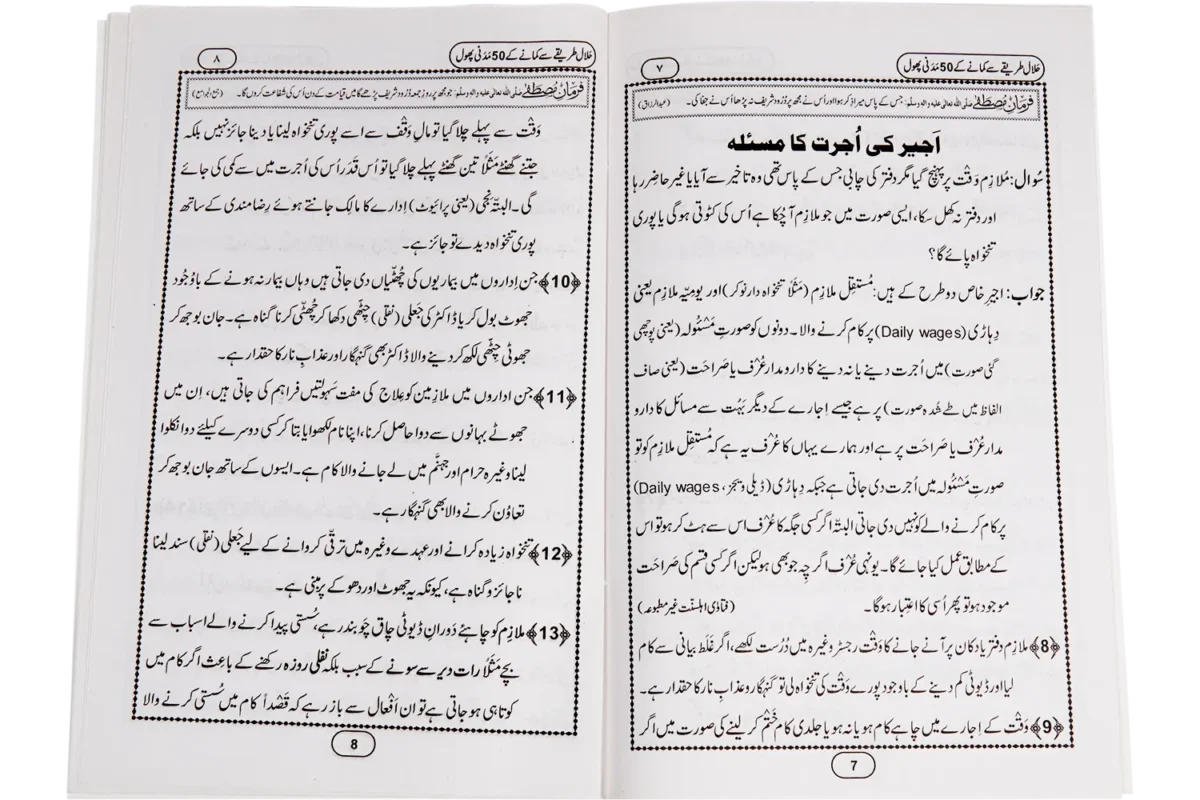 حلال طریقے سے کمانے کے 50 مَدَنی پھول
۷
فرمانِ مصطفےٰ صلی اللہ تعالیٰ علیہ والہ وسلم: جس کے پاس میرا ذکر ہوا اور اُس نے مجھ پر دُرُود شریف نہ پڑھا اُس نے جفا کی۔ (عبدالرزاق)
اَجیر کی اُجرت کا مسئلہ
سُوال: مُلازِم وَقْت پر پہنچ گیا مگر دفتر کی چابی جس کے پاس تھی وہ تاخیر سے آیا یا غیر حاضر رہا
اور دفتر نہ کھل سکا، ایسی صورت میں جو ملازِم آچکا ہے اُس کی کٹوتی ہوگی یا پوری
تنخواہ پائے گا؟
جواب: اجیرِ خاص دو طرح کے ہیں: مُستقِل ملازِم (مَثَلًا تنخواہ دار نوکر) اور یومِیّہ ملازِم یعنی
دِہاڑی (Daily wages) پر کام کرنے والا۔ دونوں کو صورتِ مَسْئُولہ (یعنی پوچھی
گئی صورت) میں اُجرت دینے یا نہ دینے کا دارو مدار عُرْف یا صَراحَت (یعنی صاف
الفاظ میں طے شُدہ صورت) پر ہے جیسے اِجارے کے دیگر بَہُت سے مسائل کا دارو
مدار عُرْف یا صَراحَت پر ہے اور ہمارے یہاں کا عُرْف یہ ہے کہ مُستقِل ملازِم کو تو
صورتِ مَسْئُولہ میں اُجرت دی جاتی ہے جبکہ دِہاڑی (ڈیلی ویجز، Daily wages)
پر کام کرنے والے کو نہیں دی جاتی البتَّہ اگر کسی جگہ کا عُرْف اس سے ہٹ کر ہو تو اس
کے مطابِق عمل کیا جائے گا۔ یونہی عُرْف اگر چِہ جو بھی ہو لیکن اگر کسی قسم کی صَراحَت
موجود ہو تو پھر اُسی کا اعتبار ہوگا۔ (فتاوٰی اہلسنّت غیر مطبوعہ)
﴿8﴾ ملازِم دفتر یا دکان پر آنے جانے کا وَقْت رجسٹر وغیرہ میں دُرُست لکھے، اگر غَلَط بیانی سے کام
لیا اور ڈیوٹی کم دینے کے باوجود پورے وَقْت کی تنخواہ لی تو گنہگار و عذابِ نار کا حقدار ہے۔
﴿9﴾ وَقْت کے اِجارے میں چاہے کام ہو یا نہ ہو یا جلدی کام خَتْم کر لینے کی صورت میں اگر
7
حلال طریقے سے کمانے کے 50 مَدَنی پھول
۸
فرمانِ مصطفےٰ صلی اللہ تعالیٰ علیہ والہ وسلم: جو مجھ پر روزِ جمعہ دُرُود شریف پڑھے گا میں قیامت کے دن اُس کی شفاعت کروں گا۔ (جمع الجوامع)
وَقْت سے پہلے چلا گیا تو مالِ وَقْف سے اسے پوری تنخواہ لینا یا دینا جائز نہیں بلکہ
جتنے گھنٹے مَثَلًا تین گھنٹے پہلے چلا گیا تو اُس قَدَر اُس کی اُجرت میں سے کمی کی جائے
گی۔ البتَّہ نِجی (یعنی پرائیوٹ) اِدارے کا مالِک جانتے ہوئے رِضا مندی کے ساتھ
پوری تنخواہ دیدے تو جائز ہے۔
﴿10﴾ جن اِداروں میں بیماریوں کی چُھٹّیاں دی جاتی ہیں وہاں بیمار نہ ہونے کے باوُجُود
جھوٹ بول کر یا ڈاکٹر کی جَعلی (نقلی) چِٹّھی دکھا کر چُھٹّی کرنا گناہ ہے۔ جان بوجھ کر
جھوٹی چِٹّھی لکھ کر دینے والا ڈاکٹر بھی گنہگار اور عذابِ نار کا حقدار ہے۔
﴿11﴾ جن اِداروں میں ملازِمین کو عِلاج کی مفت سَہولتیں فراہم کی جاتی ہیں، اِن میں
جھوٹے بہانوں سے دوا حاصل کرنا، اپنا نام لکھوا یا بتا کر کسی دوسرے کیلئے دوا نکلوا
لینا وغیرہ حرام اور جہنَّم میں لے جانے والا کام ہے۔ ایسوں کے ساتھ جان بوجھ کر
تعاوُن کرنے والا بھی گنہگار ہے۔
﴿12﴾ تنخواہ زیادہ کرانے اور عہدے وغیرہ میں ترقّی کروانے کے لیے جَعلی (نقلی) سند لینا
ناجائز و گناہ ہے، کیونکہ یہ جھوٹ اور دھوکے پر مبنی ہے۔
﴿13﴾ ملازِم کو چاہئے دَورانِ ڈیوٹی چاق چوبند رہے، سُستی پیدا کرنے والے اسباب سے
بچے مَثَلًا رات دیر سے سونے کے سبب بلکہ نفلی روزہ رکھنے کے باعِث اگر کام میں
کوتاہی ہو جاتی ہے تو ان اَفعال سے باز رہے کہ قَصْداً کام میں سُستی کرنے والا
8